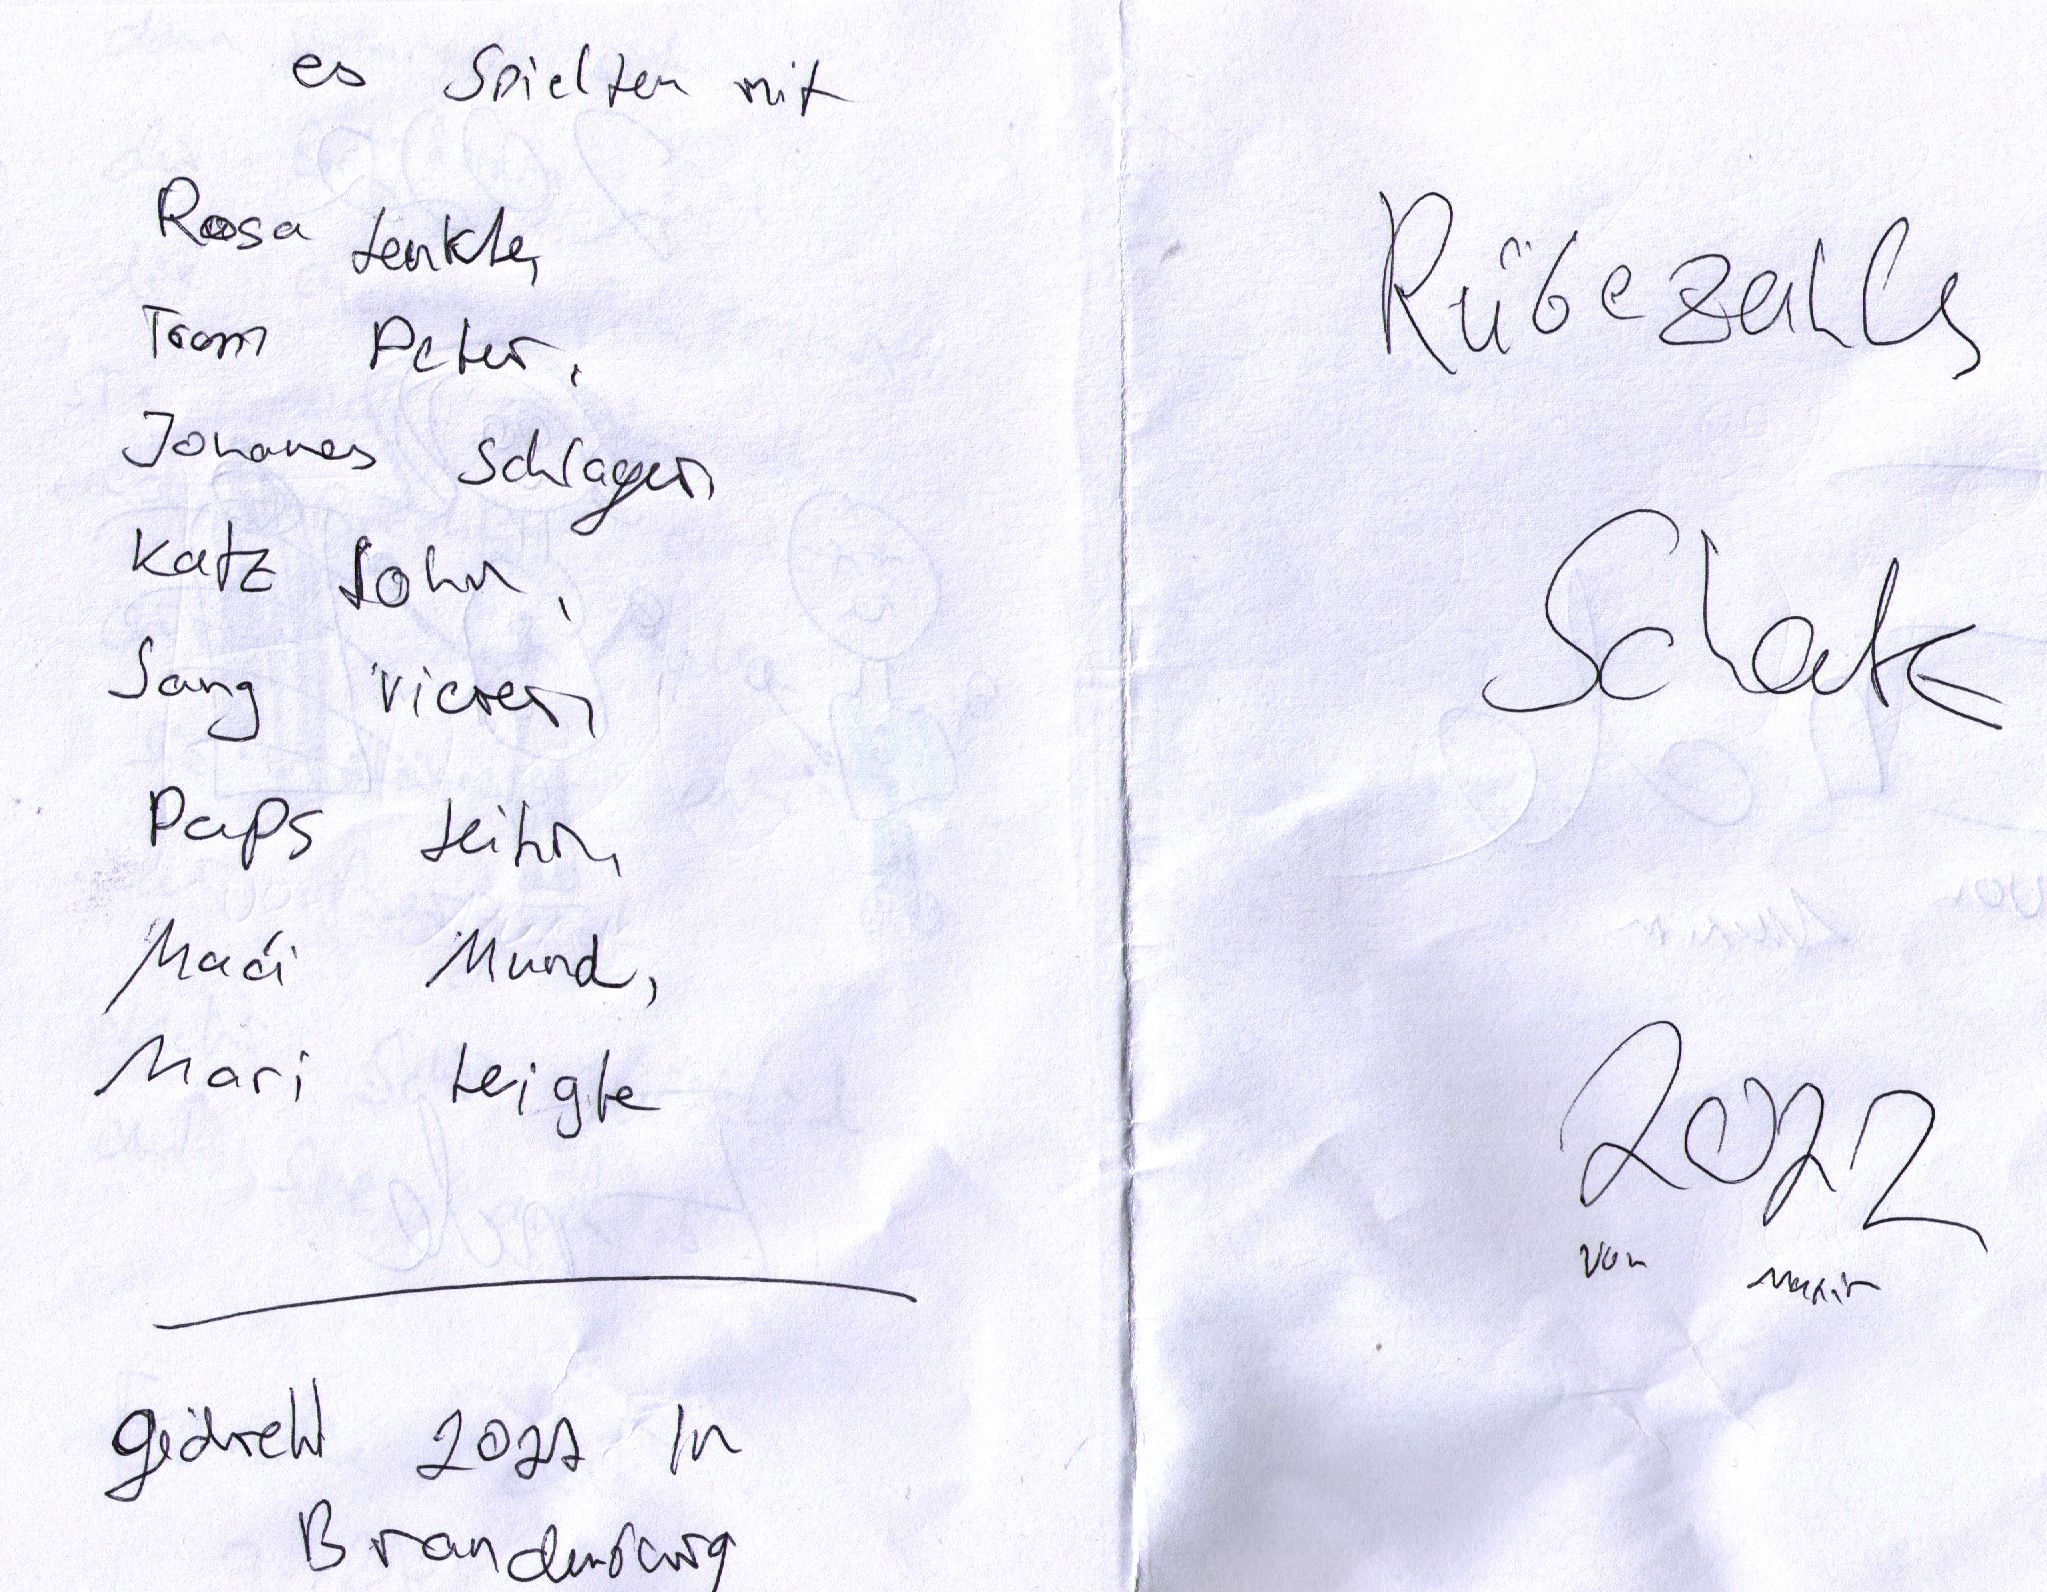 es Spielten mit
Rosa tenkte,
Trom Peter,
Johanes Schlager,
Katz Sohn,
Sang Vierer,
Paps
Mund,
Mari teigte
gedreht 2022 In
Brandenburg
Rübezahls
Schatz
2022
von Maxim